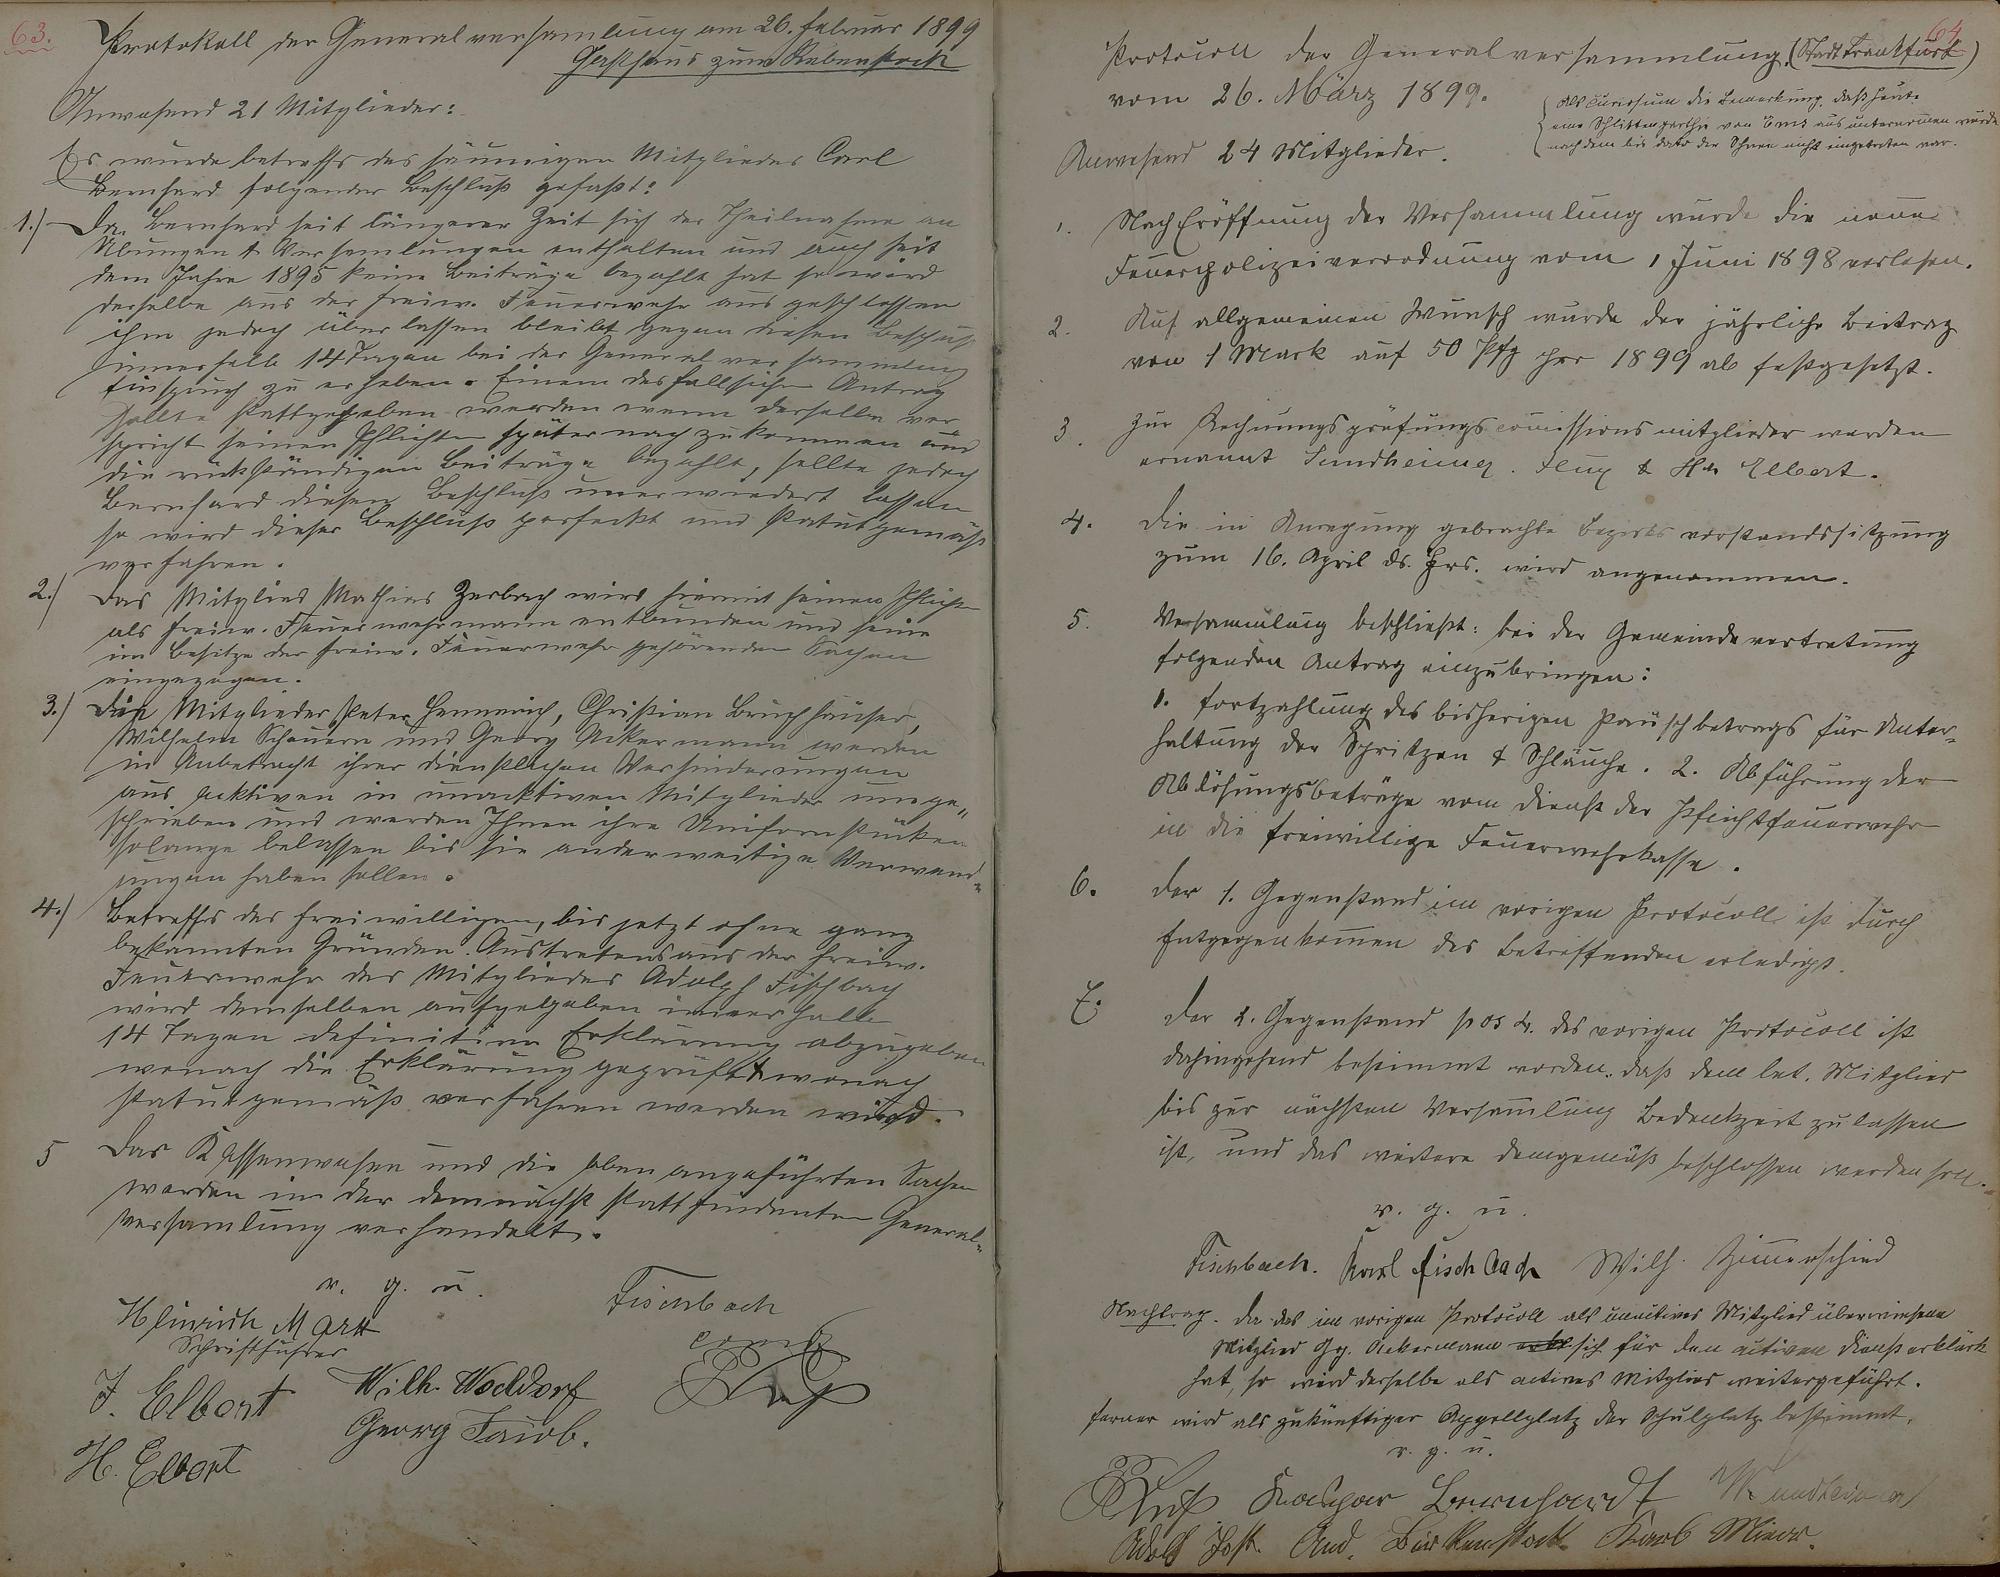 63.
Protokoll der Generalversamlung am 26. Februar 1899
Gasthaus zum Rebenstock
Anwesend 21 Mitglieder:
Es wurde betreffs des säumigen Mitgliedes Carl
Bernhard folgender Beschluß gefaßt:
1.) Da Bernhard seit längerer Zeit sich der Theilnahme an
Übungen & Versamlungen enthalten und auch seit
dem Jahre 1895 keine Beiträge bezahlt hat so wird
derselbe aus der freiw. Feuerwehr ausgeschlossen
ihm jedoch überlassen bleibt gegen diesen Beschluß
innerhalb 14 Tagen bei der Generalversammlung
Einspruch zu erheben. Einem desfallsichen Antrag
sollte stattgegeben werden wenn derselbe ver
spricht seinen Pflichten später nach zu kommen und
die rückständigen Beiträge bezahlt, sollte jedoch
Bernhard diesen Beschluß unerwiedert lassen
so wird dieser Beschluß perfeckt und statutgemäß
verfahren.
2.) Das Mitglied Mathias Zerbach wird hiermit seinen Pflichten
als freiw. Feuerwehrmann entbunden und seine
im Besitze der freiw. Feuerwehr gehörenden Sachen
eingezogen.
3.) Die Mitglieder Peter Hennerich, Christian Bruchhäuser,
Wilhelm Schauern und Georg Ackermann werden
in Anbetracht ihrer dienstlichen Verhinderungen
aus acktiven in unacktiven Mitglieder umge„
schrieben und werden Ihnen ihre Uniformstücken
solange belassen bis sie anderweitige Verwend„
ungen haben sollen.
4.) Betreffs des freiwilligen, bis jetzt ohne ganz
bekannten Gründen Austretens aus der freiw.
Feuerwehr des Mitgliedes Adolph Fischbach
wird demselben aufgegeben innerhalb
14 Tagen definitive Erklärung abzugeben
wonach die Erklärung geprüft & wonach
statutgemäß verfahren werden wird.
5 Das Kassenwesen und die oben angeführten Sachen
werden in der demnächst stattfindenten General„
versamlung verhandelt.
v. g. u.
Heinrich Mark Fischbach
Schriftführer
J. Elbert Wilh. Wolldorf
Georg Jacob.
H. Elbert
64.
Protocoll der Generalversammlung. (Stadt Frankfurt)
vom 26. März 1899.
Als Curiosum die Bemerkung, daß heute
eine Schlittenparthie von Ems aus unternommen wurde
nachdem bis dato der Schnee nicht eingetreten war.
Anwesend 24 Mitglieder.
1. Nach Eröffnung der Versammlung wurde die neue
Feuerpolizeiverordnung vom 1 Juni 1898 verlesen.
2. Auf allgemeinen Wunsch wurde der jährliche Beitrag
von 1 Mark auf 50 Pfg per 1899 ab festgesetzt.
3. Zur Rechnungsprüfungscomissionsmitglieder werden
ernannt Sundheimer. Flug & Hch Elbert.
4. Die in Anregung gebrachte Bezirksvorstandssitzung
zum 16. April ds. Jrs. wird angenommen.
5. Versammlung beschließt: bei der Gemeindevertretung
folgenden Antrag einzubringen:
1. Fortzahlung des bisherigen Pauschbetrags für Unter„
haltung der Spritzen & Schläuche. 2. Abführung der
Ablösungsbeträge vom Dienst der Pflichtfeuerwehr
in die freiwillige Feuerwehrkasse.
6. Der 1. Gegenstand im vorigen Protocoll ist durch
Entgegenkommen des Betreffenden erledigt.
7. Der 2. Gegenstand pos 4. des vorigen Protocoll ist
dahingehend bestimmt worden, daß dem bet. Mitglied
bis zur nächsten Versamlung Bedenkzeit zu lassen
ist, und das weitere demgemäß beschlossen werden soll.
v. g. u.
Fischbach. Karl Fischbach Wilh. Zimerschied
Nachtrag. Da das im vorigen Protocoll als inactives Mitglied überwiesene
Mitglied Gg. Ackermann sich für den activen Dienst erklärt
hat, so wird derselbe als actives Mitglied weitergeführt.
Ferner wird als zukünftiger Appellplatz der Schulplatz bestimmt.
v. g. u.
Flug Kaspar Bernhardt
Adolf Jost. And. Birkenstock Karl Minor.